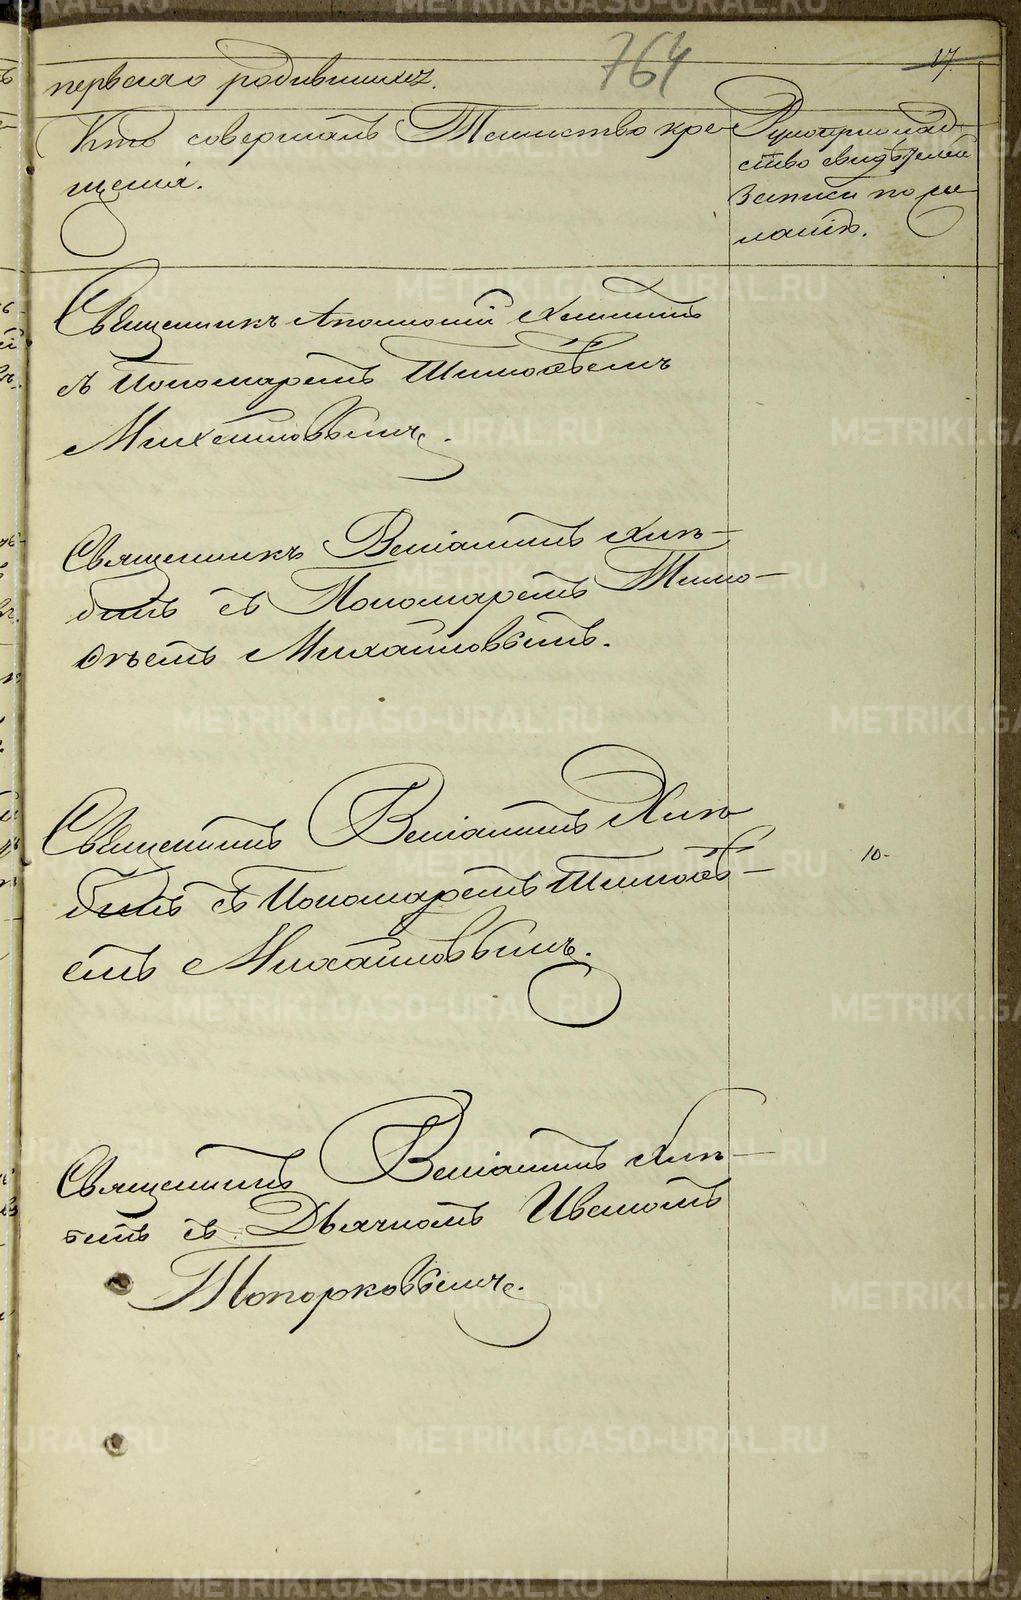 764
17.
перваго родившихся.
Кто совершалъ Таинство кре-
щенія.
Рукоприклад-
ство свидѣтелей
записи по же-
ланію.
Священникъ
съ Пономаремъ Тимоѳеемъ
Михайловымъ.
Священникъ Веніаминъ Хлѣ-
бинъ съ Пономаремъ Тимо-
ѳѣемъ Михайловымъ.
Священникъ Веніаминъ Хлѣ-
бинъ съ Пономаремъ Тимоѳе-
емъ Михайловымъ.
10.
Священникъ Веніаминъ Хлѣ-
бинъ съ Дьячкомъ Иваномъ
Топорковымъ.
METRIKI.GASO-URAL.RU